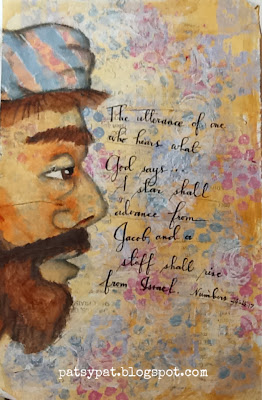 The utterance of one
who hears what
God says...
A star shall
advance from
Jacob, and a
staff shall rise
from Israel. Numbers
patsypat.blogspot.com